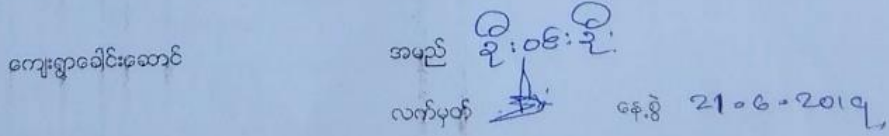 ကျေးရွာခေါင်းဆောင် အမည် စိုးဝင်းစိုး
လက်မှတ် နေ့စွဲ 21.6.2019